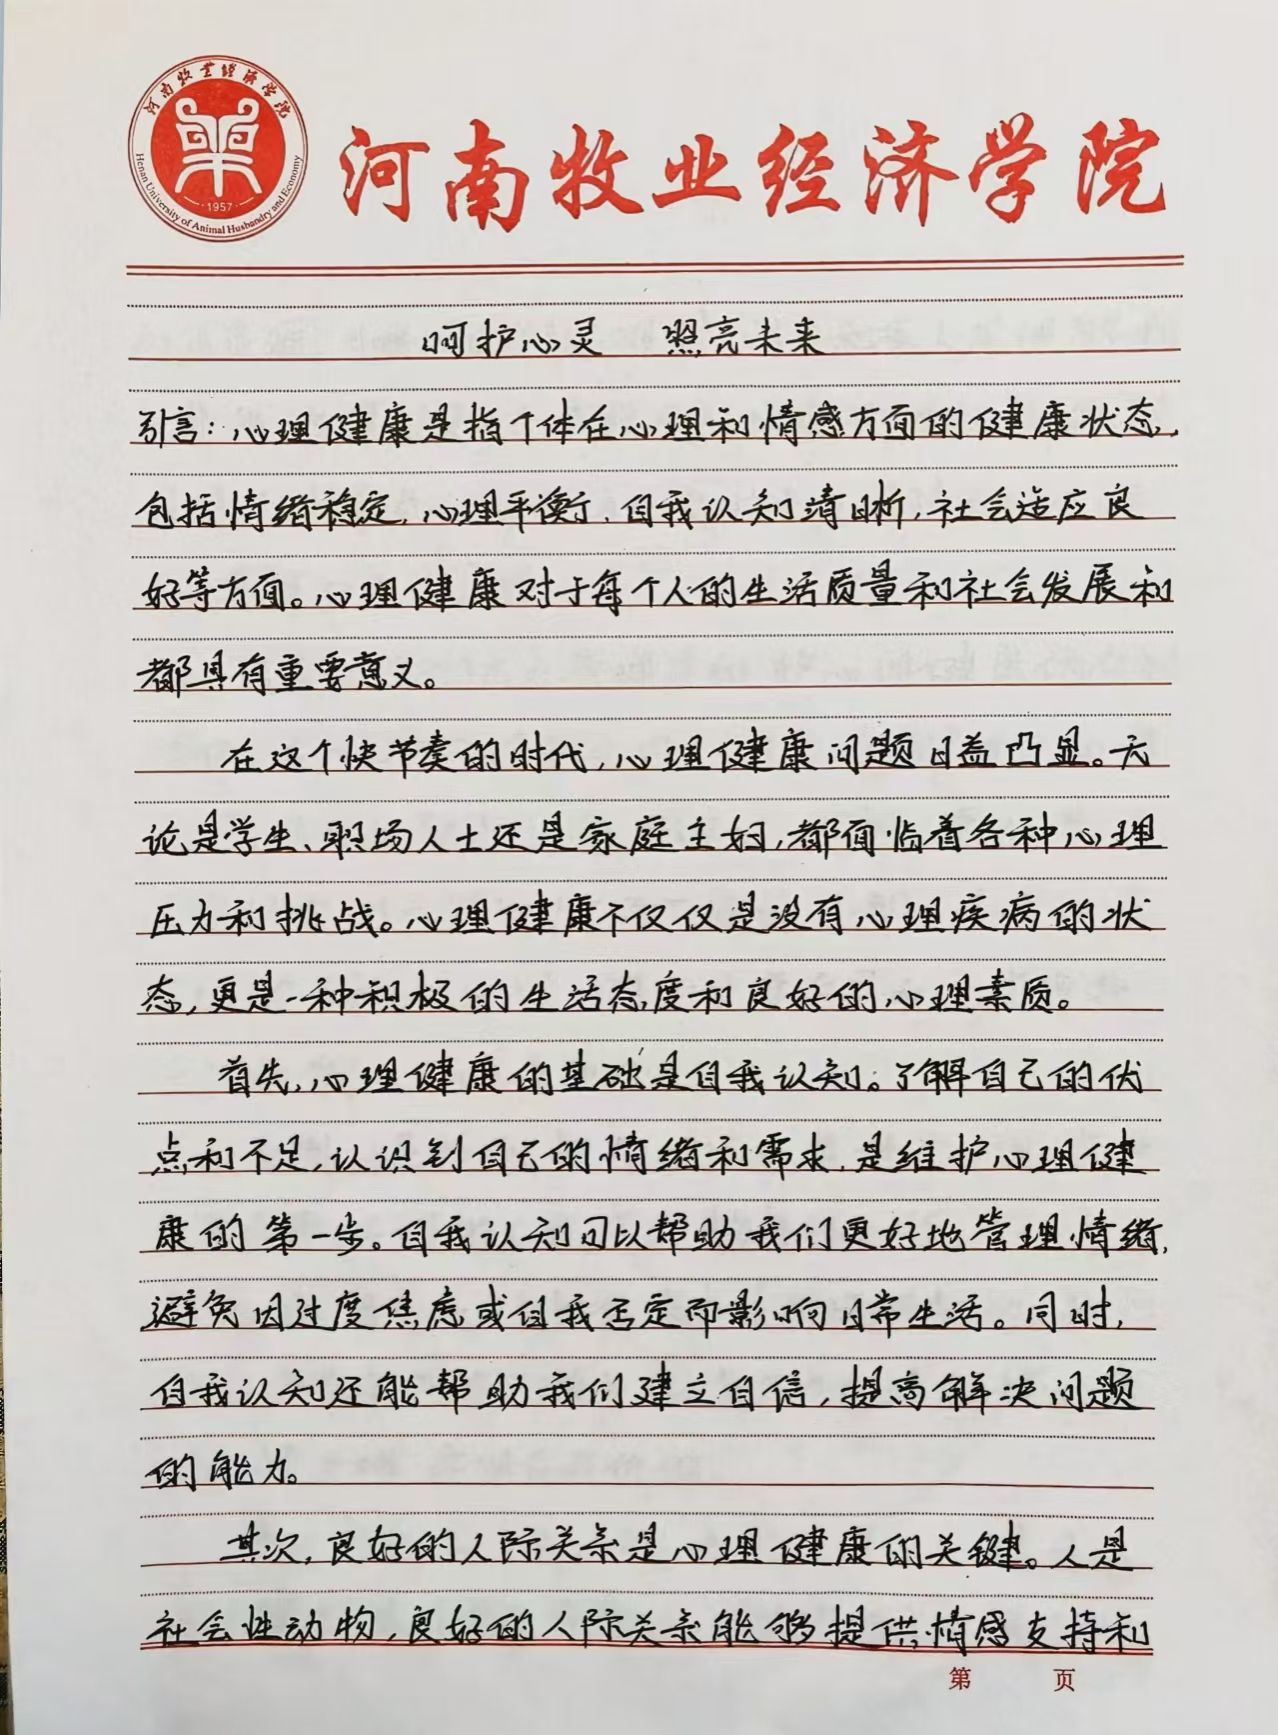 河南牧业经济学院
Henan University of Animal Husbandry and Economy
·1957·
河南牧业经济学院
呵护心灵 照亮未来
引言：心理健康是指个体在心理和情感方面的健康状态，
包括情绪稳定，心理平衡、自我认知清晰，社会适应良
好等方面。心理健康对于每个人的生活质量和社会发展和
都具有重要意义。
在这个快节奏的时代，心理健康问题日益凸显。无
论是学生、职场人士还是家庭主妇，都面临着各种心理
压力和挑战。心理健康不仅仅是没有心理疾病的状
态，更是一种积极的生活态度和良好的心理素质。
首先，心理健康的基础是自我认知。了解自己的优
点和不足，认识到自己的情绪和需求，是维护心理健
康的第一步。自我认知可以帮助我们更好地管理情绪，
避免因过度焦虑或自我否定而影响日常生活。同时，
自我认知还能帮助我们建立自信，提高解决问题
的能力。
其次，良好的人际关系是心理健康的关键。人是
社会性动物，良好的人际关系能够提供情感支持和
第 页